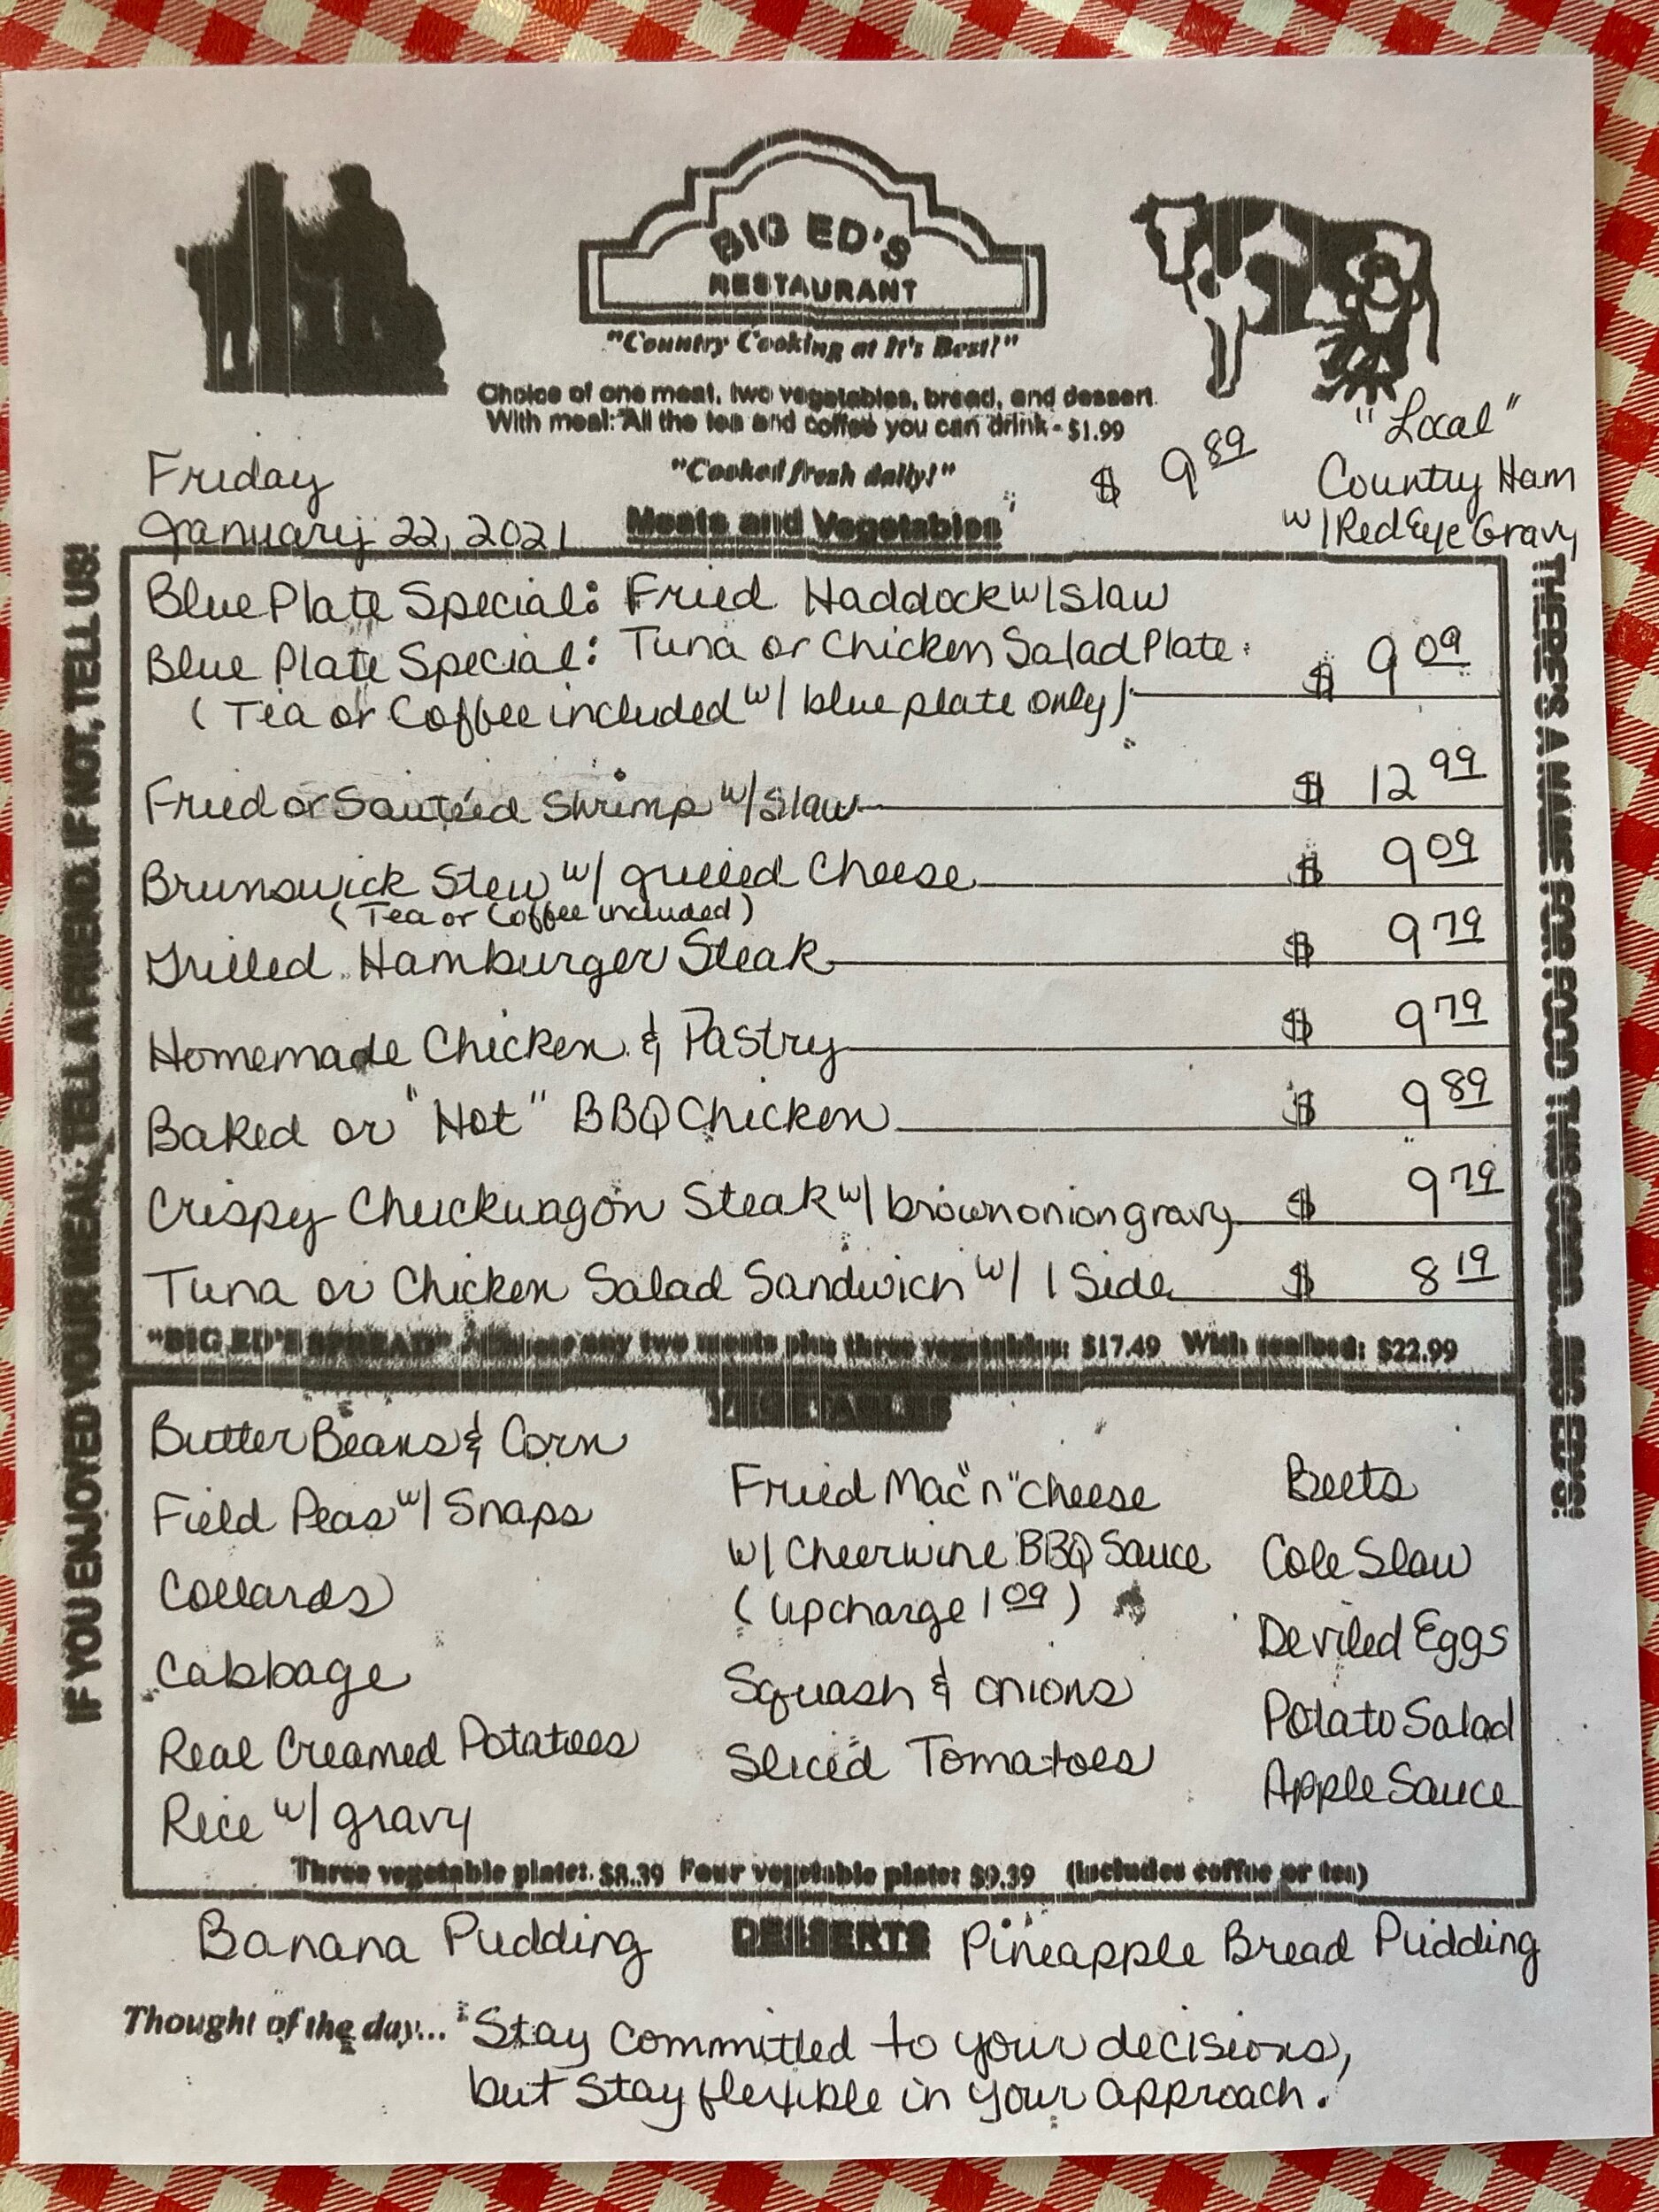 BIG ED'S
RESTAURANT
"Country Cooking at It's Best!"
Choice of one meat, two vegetables, bread, and dessert.
With meal: "All the tea and coffee you can drink - $1.99
"Cooked fresh daily!"
Friday
January 22, 2021
Meats and Vegetables
$ 9 89
"Local"
Country Ham
w/ Red Eye Gravy
IF YOU ENJOYED YOUR MEAL, TELL A FRIEND. IF NOT, TELL US!
Blue Plate Special: Fried Haddock w/ Slaw
Blue Plate Special: Tuna or Chicken Salad Plate $ 9 09
(Tea or Coffee included w/ blue plate only)
Fried or Sauteéd Shrimp w/ Slaw $ 12 99
Brunswick Stew w/ grilled Cheese $ 9 09
(Tea or Coffee included)
Grilled Hamburger Steak $ 9 79
Homemade Chicken & Pastry $ 9 79
Baked or "Hot" BBQ Chicken $ 9 89
Crispy Chuckwagon Steak w/ brown onion gravy $ 9 79
Tuna or Chicken Salad Sandwich w/ 1 Side $ 8 19
"BIG ED'S SPREAD" - Choose any two meats plus three vegetables: $17.49 With seafood: $22.99
THERE'S A NAME FOR FOOD THIS GOOD... BIG ED'S!
VEGETABLES
Butter Beans & Corn
Field Peas w/ Snaps
Collards
Cabbage
Real Creamed Potatoes
Rice w/ gravy
Fried Mac "n" Cheese
w/ Cheerwine BBQ Sauce
(upcharge 1 09)
Squash & onions
Sliced Tomatoes
Beets
Cole Slaw
Deviled Eggs
Potato Salad
Apple Sauce
Three vegetable plate: $8.39 Four vegetable plate: $9.39 (Includes coffee or tea)
DESSERTS
Banana Pudding
Pineapple Bread Pudding
Thought of the day... "Stay committed to your decisions,
but stay flexible in your approach."